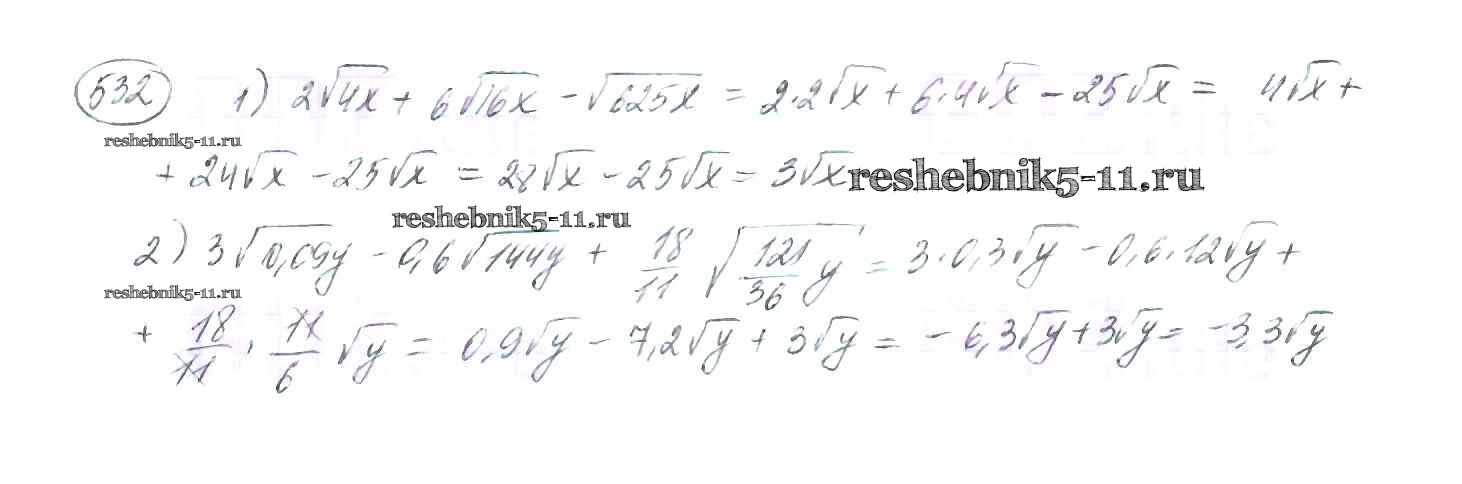 532 1) 2√4x + 6√16x - √625x = 2·2√x + 6·4√x - 25√x = 4√x +
reshebnik5-11.ru
+ 24√x - 25√x = 28√x - 25√x = 3√x reshebnik5-11.ru
reshebnik5-11.ru
2) 3√0,09y - 0,6√144y + 18/11 √121/36 y = 3·0,3√y - 0,6·12√y +
reshebnik5-11.ru
+ 18/11 · 11/6 √y = 0,9√y - 7,2√y + 3√y = -6,3√y + 3√y = -3,3√y